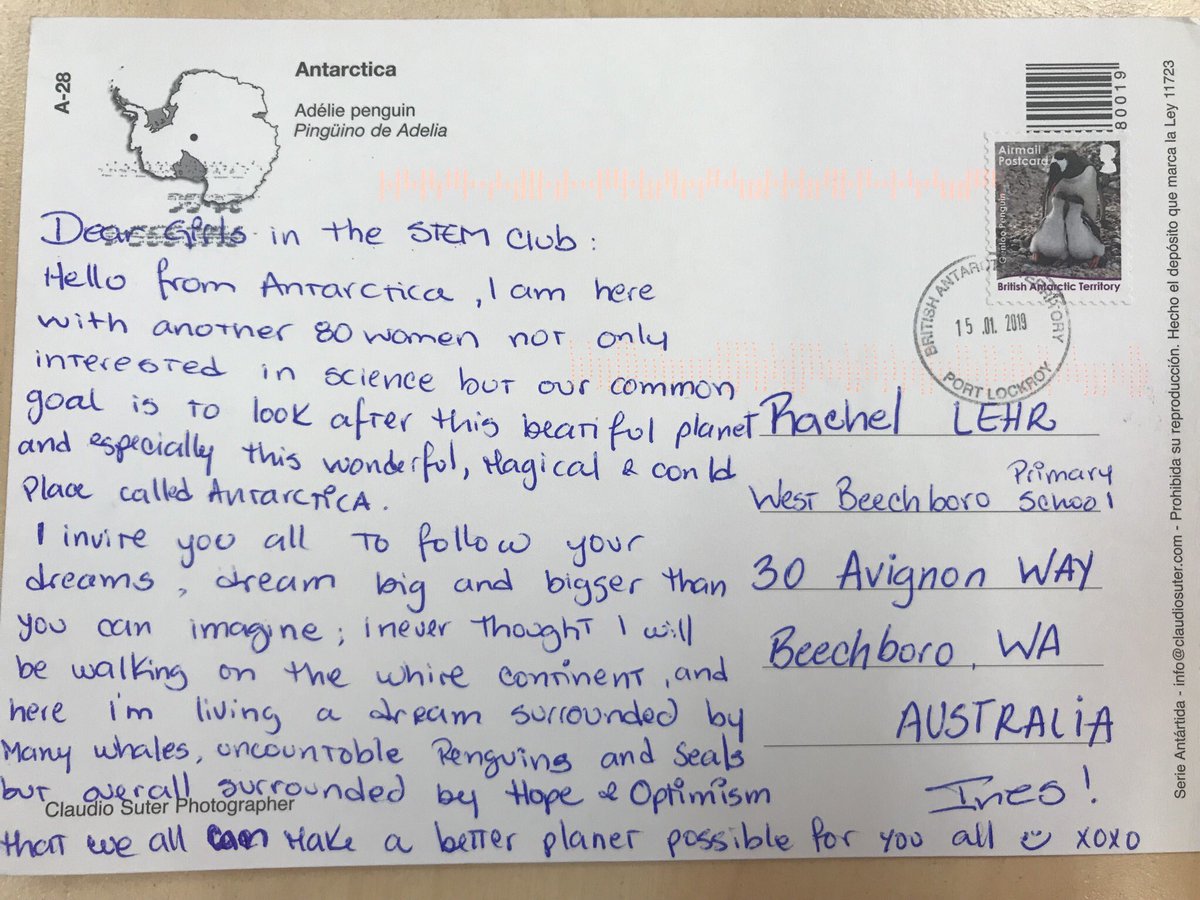 A-28
Antarctica
Adélie penguin
Pingüino de Adelia
80019
Airmail
Postcard
Gentoo Penguin
British Antarctic Territory
BRITISH ANTARCTIC TERRITORY
15 .01. 2019
PORT LOCKROY
Dear Girls in the STEM Club:
Hello from Antarctica, I am here
with another 80 women not only
interested in science but our common
goal is to look after this beatiful planet
and especially this wonderful, Magical & conld
Place called ANTARCTICA.
I invite you all to follow your
dreams, dream big and bigger than
you can imagine; I never thought I will
be walking on the white continent, and
here i'm living a dream surrounded by
Many whales, uncountable Penguins and Seals
but overall surrounded by Hope & Optimism
that we all can Make a better planet possible for you all xoxo
Ines!
Rachel LEHR
West Beechboro Primary School
30 Avignon WAY
Beechboro, WA
AUSTRALIA
Claudio Suter Photographer
Serie Antártida - info@claudiosuter.com - Prohibida su reproducción. Hecho el depósito que marca la Ley 11723